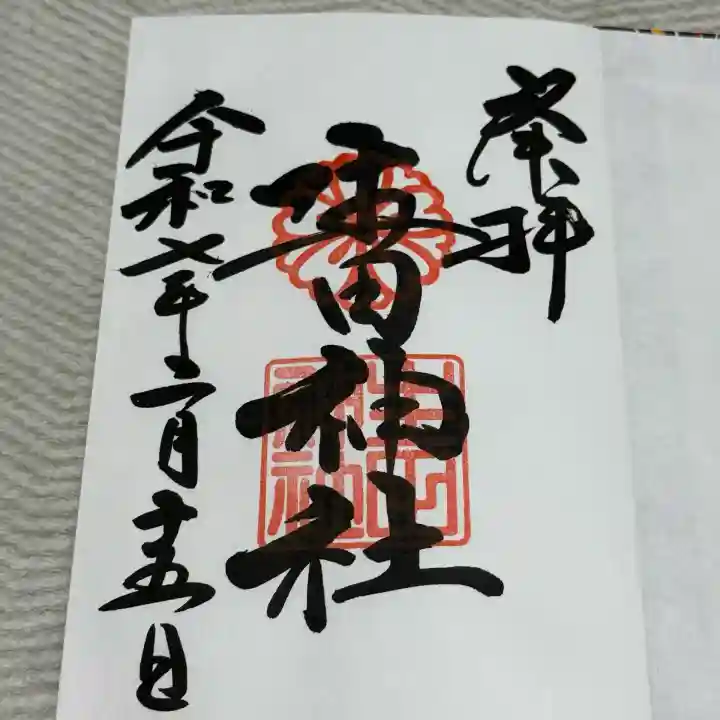 奉拝
雷神社
令和七年二月十五日